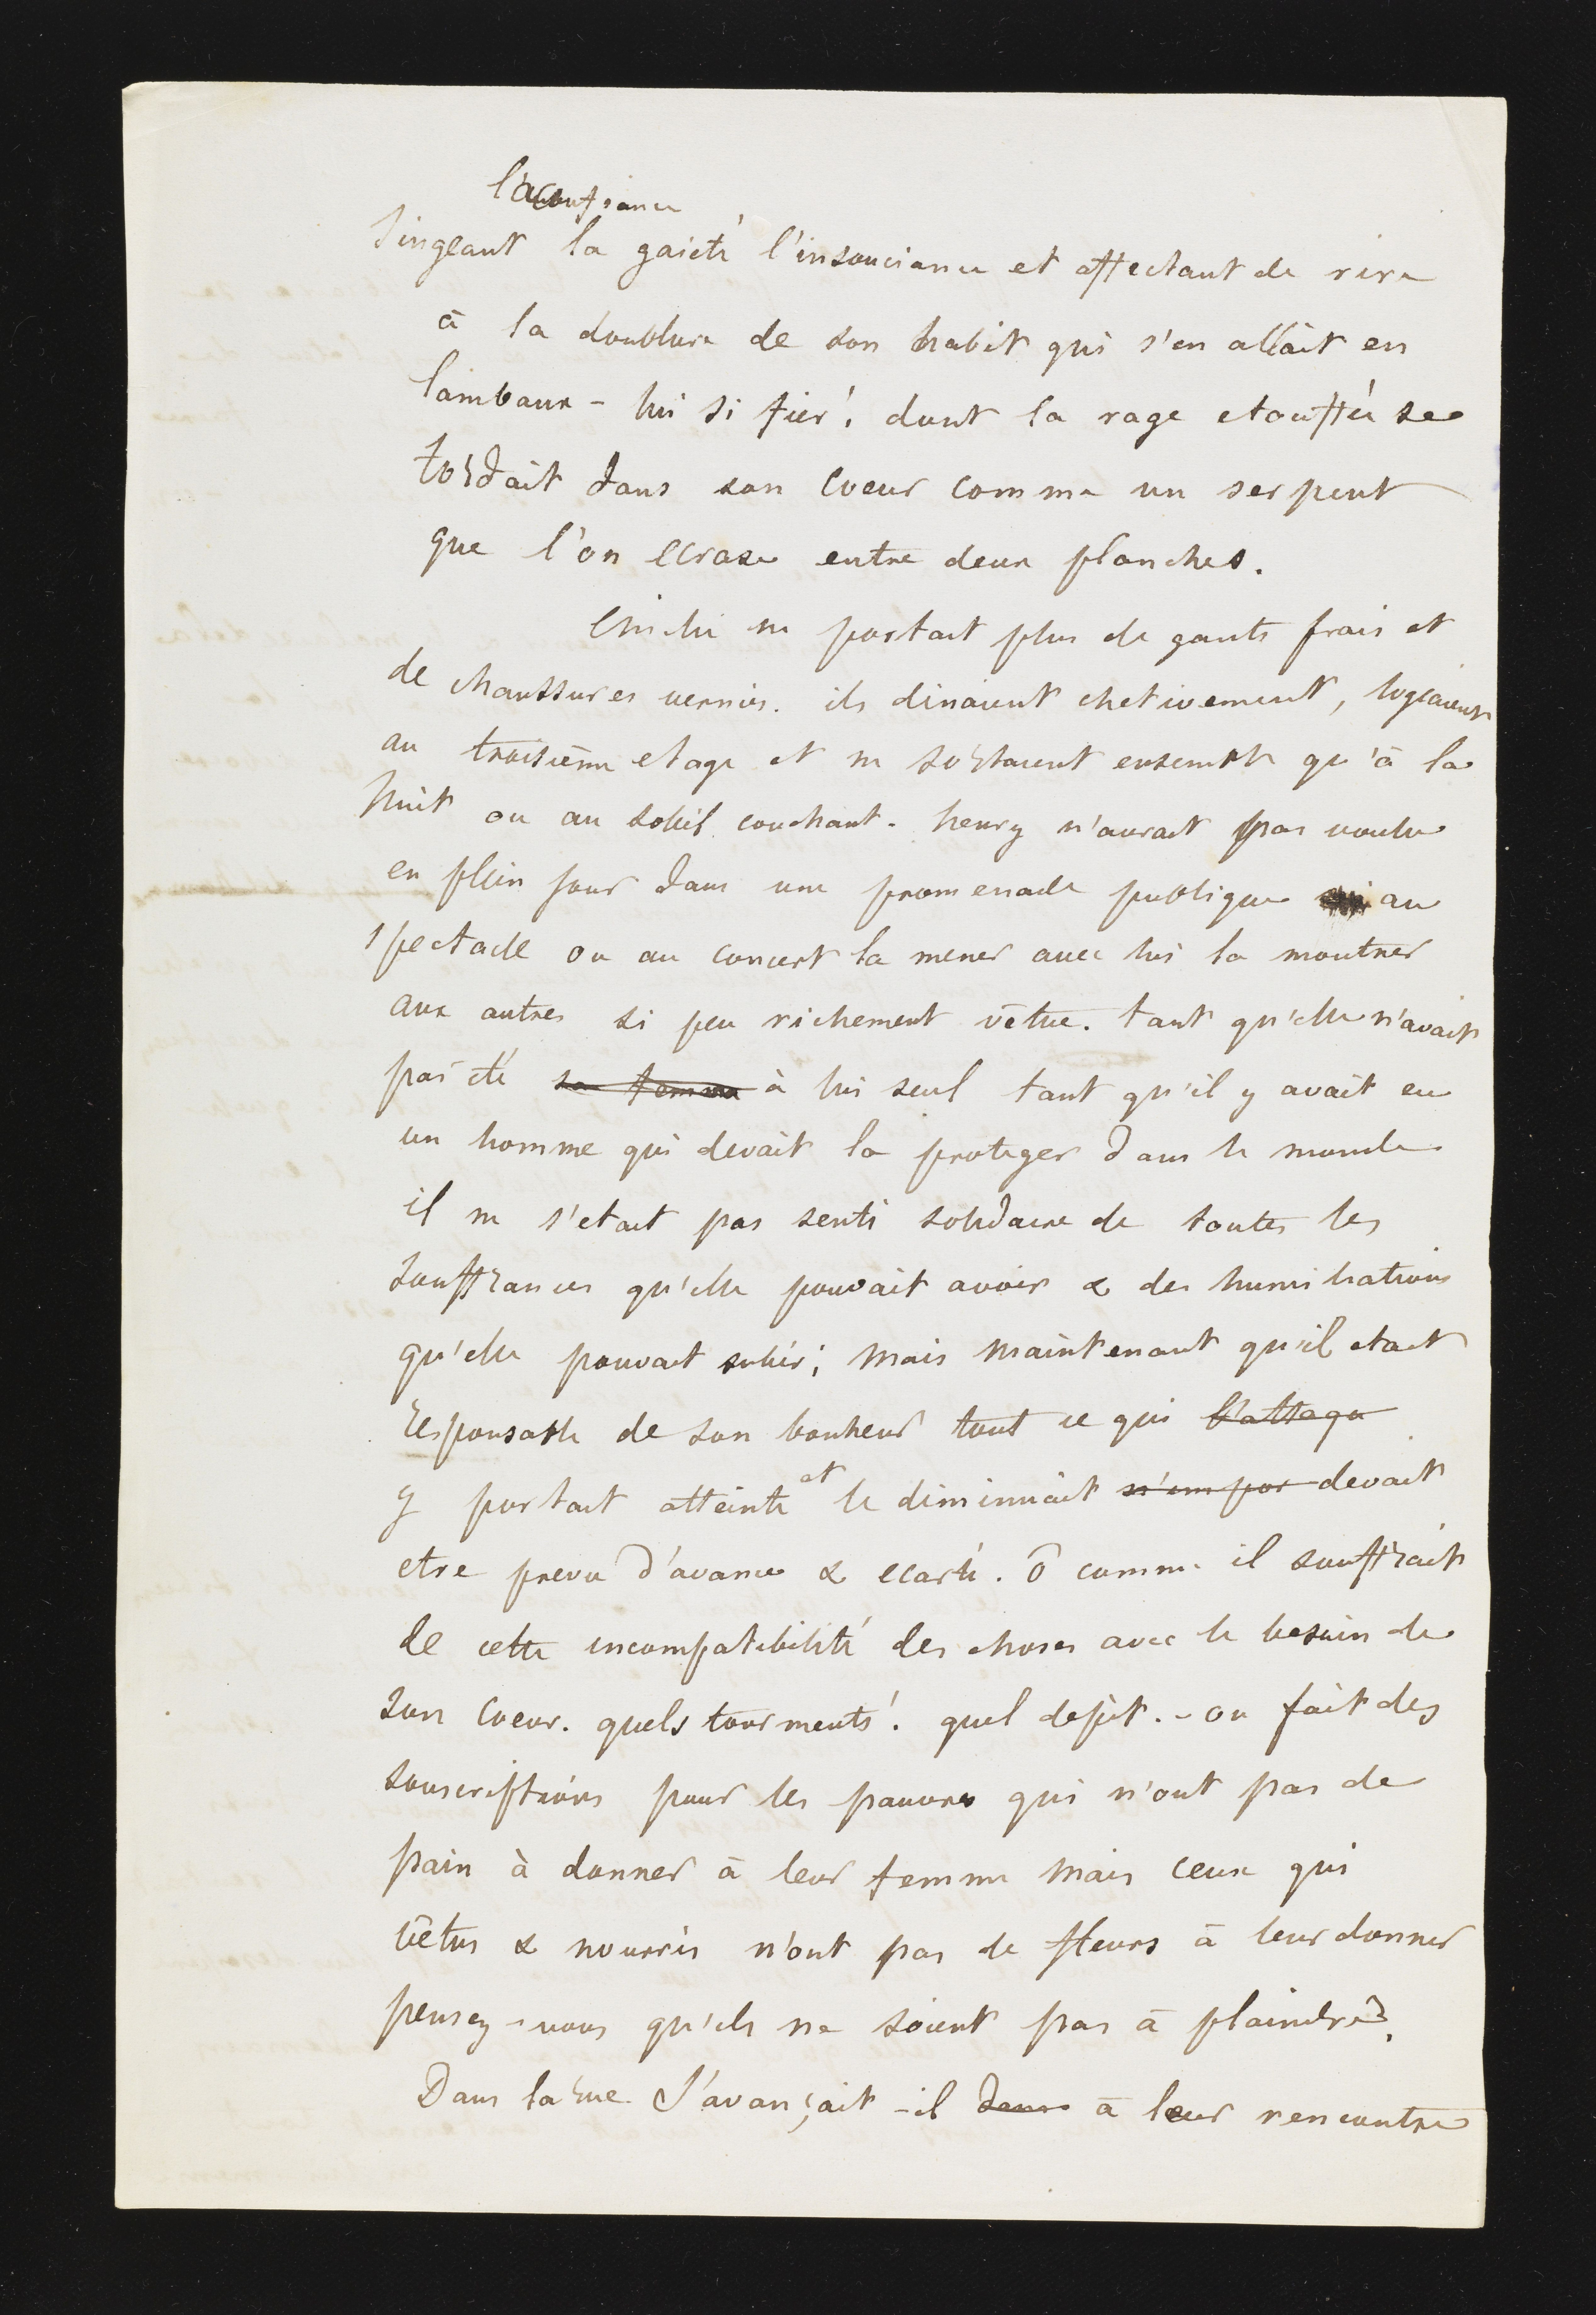 la confiance
singeant la gaieté l'insouciance et affectant de rire
à la doublure de son habit qui s'en allait en
lambaux - lui si fier! dont la rage etouffée se
tordait dans son coeur comme un serpent
que l'on ecrase entre deux planches.
Emilie ne portait plus de gants frais et
de chaussures vernies. ils dinaient chetivement, logeaient
au troisième etage et ne sortaient ensemble qu'à la
nuit ou au soleil couchant. henry n'aurait pas voulu
en plein jour dans une promenade publique au
spectacle ou au concert la mener avec lui la montrer
aux autres si peu richement vêtue. tant qu'elle n'avait
pas été sa femme à lui seul tant qu'il y avait eu
un homme qui devait la proteger dans le monde
il ne s'etait pas senti solidaire de toutes les
souffrances qu'elle pouvait avoir & des humiliations
qu'elle pouvait subir; mais maintenant qu'il etait
responsable de son bonheur tout ce qui l'attaqu
y portait atteinte et le diminuait n'en por devait
etre prevu d'avance & ecarté. ô comme il souffrait
de cette incompatibilité des choses avec le besoin de
son coeur. quels tourments! quel depit. - on fait des
souscriptions pour les pauvres qui n'ont pas de
pain à donner à leur femme mais ceux qui
vêtus & nourris n'ont pas de fleurs à leur donner
pensez-vous qu'ils ne soient pas à plaindre?
Dans la rue s'avançait-il dans à leur rencontre